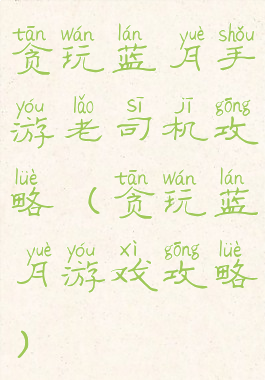 tān wán lán yuè shǒu
贪玩蓝月手
yóu lǎo sī jī gōng
游老司机攻
lüè tān wán lán
略(贪玩蓝
yuè yóu xì gōng lüè
月游戏攻略
)